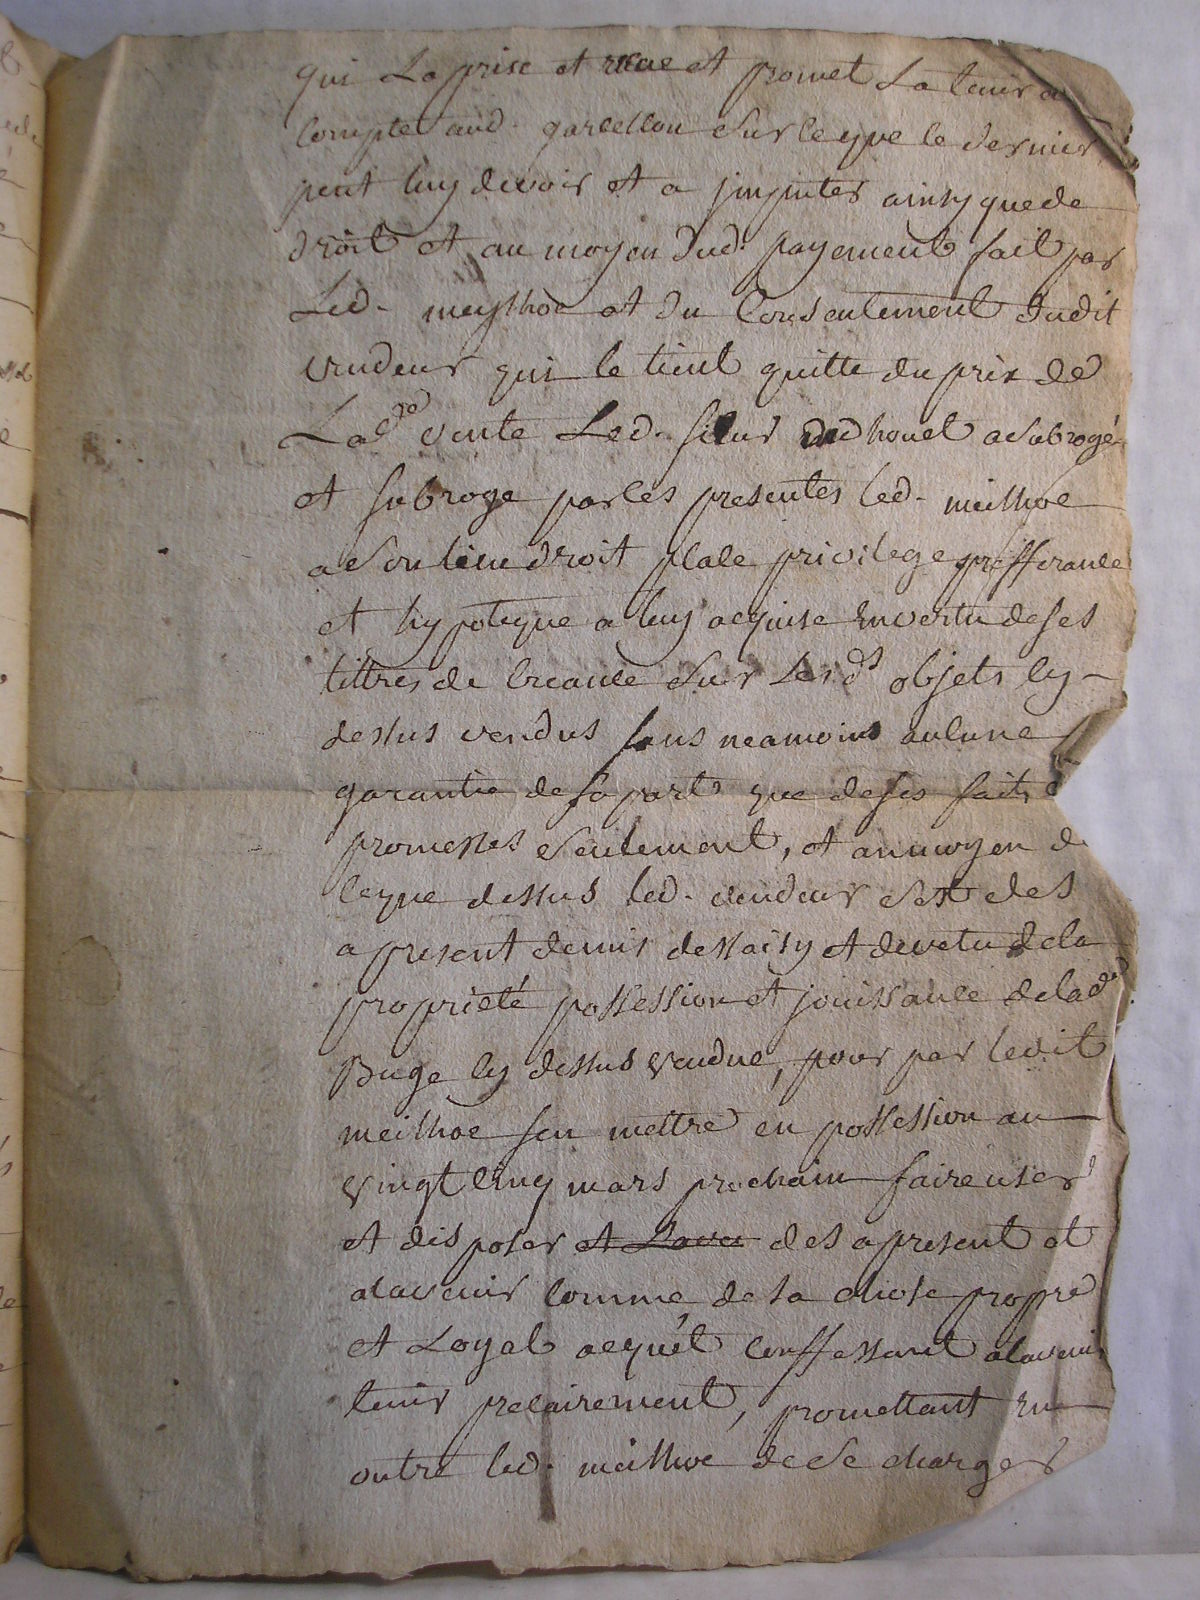 qui La prise et recue et promet La tenir a
Compte aud. garcellon Sur ce que le dernier
peut luy devoir et a jmputer ainsy que de
droit et au moyen dud. payement fait par
Led. meylhoc et du Consentement dudit
vendeur qui le tient quitte du prix de
Lad.e vente Led. sieur andhouet a Subrogé
et subroge par les presentes led. meilhoc
a Son lieu droit place privilege prefferance
et hypoteque a luy acquise en vertu de ses
tittres de Creance Sur Les ds objets cy
dessus vendus sans neamoins aulcune
garantie de sa part que de ses faits
promesses Seulement, et au moyen de
ce que dessus led. vendeur Sest des
a present demis dessaisy et devetu de la
proprieté possession et jouissance de lad.e
Buge cy dessus vendue, pour par ledit
meilhoc sen mettre en possession au
vingt cinq mars prochain faire user
et disposer et Lavec des a present et
alavenir Comme de sa chose propre
et Loyal acquet Conffessant alavenir
tenir precairement, promettant En
outre led. meilhoc de Se charger